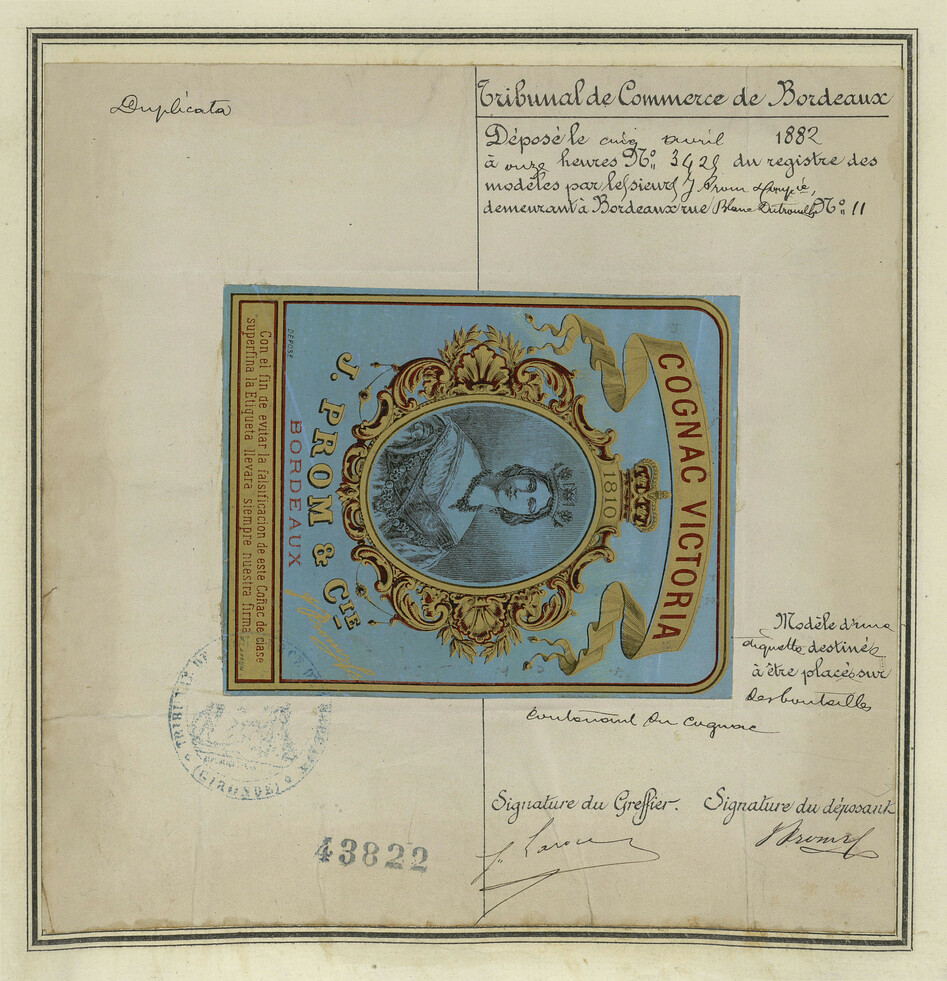 Duplicata
Tribunal de Commerce de Bordeaux
Déposé le cinq avril 1882
à onze heures No. 3425 du registre des
modèles par le sieurs J Prom & Compie,
demeurant à Bordeaux rue Blanc Dutrouilh No. 11
COGNAC VICTORIA
1810
J. PROM & CIE
BORDEAUX
DÉPOSÉ
Con el fin de evitar la falsificacion de este Coñac de clase
superfina la Etiqueta llevara siempre nuestra firma
Modèle d'une
étiquette destinée
à être placée sur
des bouteilles
contenant du cognac
TRIBUNAL DE COMMERCE DE BORDEAUX
(GIRONDE)
Signature du Greffier. Signature du déposant
43822